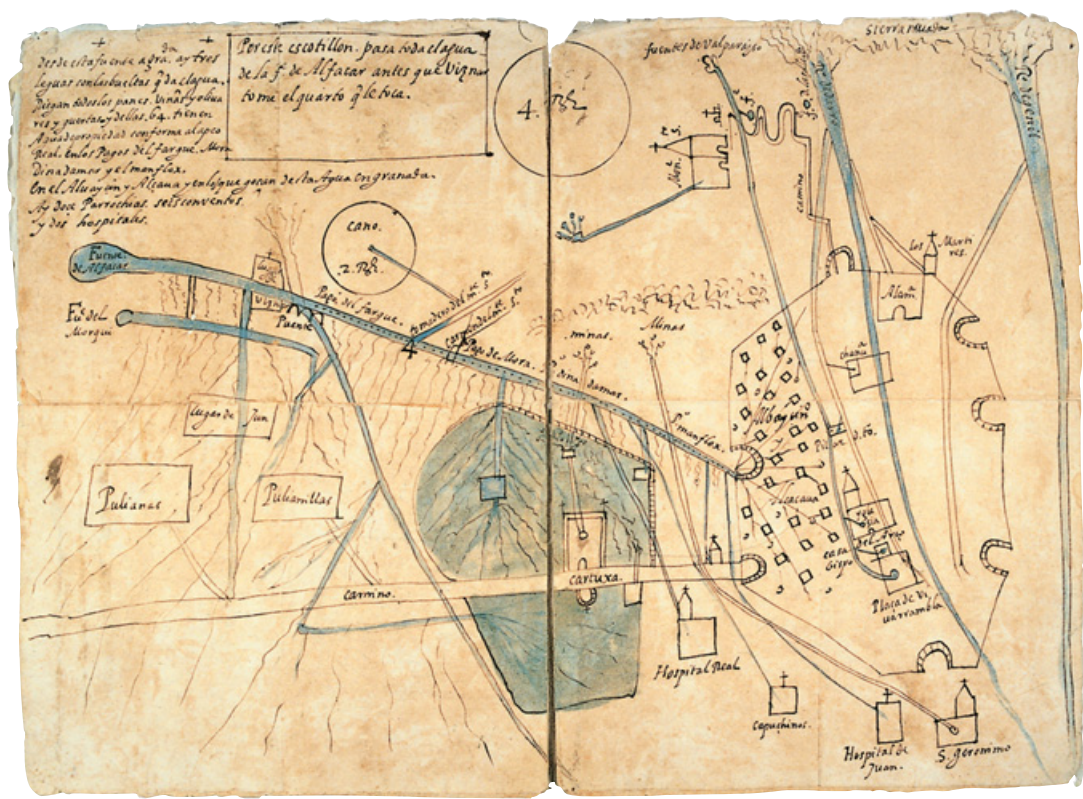 desde esta fuente a gra.da ay tres
leguas con las bueltas q da el agua.
Riegan todos los panes. Viñas y oliua
res y guertas y dellas. 64. tienen
Agua de propiedad conforma al apeo
Real. en los Pagos del fargue. Mora
Dinadamos y el manflox.
En el Aluayçin y Alcaua y en los que goçan de esta Agua en granada.
Ay doce Parrochias. seis conventos
y dos hospitales.
Por este escotillon. pasa toda el agua
de la f.e de Alfacar antes que Viznar
tome el quarto q le toca.
4.
fuentes de Valparayso
Sierra neuada
R. de genil
camino
los Martires.
Alam.a
cano.
2.
Fuente
de Alfacar
Fu.e del
Morqui
Viznar
Puente
Pago del fargue.
tomadero del
4
Pago de Mora.
Dinadamar.
P.o manflox.
minas.
Minas
Albayçin
Alcacaua
Lugar de Jun
Pulianas
Pulianillas
camino.
cartuxa.
casa
Plaça de Vi
uarrambla
Hospital Real
capuchinos.
Hospital de
Juan.
S. geronimo